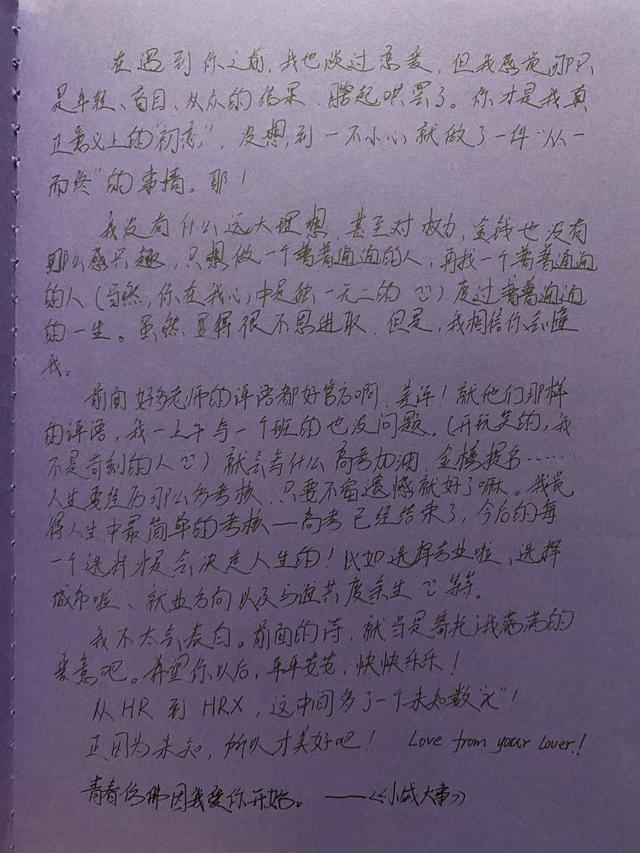 在遇到你之前，我也谈过恋爱，但我感觉那只
是年轻、盲目、从众的结果，瞎起哄罢了。你才是我真
正意义上的"初恋"，没想到一不小心就做了一件"从一
而终"的事情。耶！
我没有什么远大理想，甚至对权力，金钱也没有
那么感兴趣，只想做一个普普通通的人，再找一个普普通通
的人（当然，你在我心中是独一无二的）度过普普通通
的一生。虽然显得很不思进取，但是，我相信你会懂
我。
前面好多老师的评语都好官方啊，美连！就他们那样
的评语，我一上午写一个班的也没问题。（开玩笑的，我
不是苛刻的人）就会写什么高考加油，金榜题名……
人生要经历那么多考核，只要不留遗憾就好了嘛。我觉
得人生中最简单的考核—高考已经结束了，今后的每
一个选择才是会决定人生的！比如选择专业啦、选择
城市啦、就业方向以及与谁共度余生等等。
我不太会表白。前面的诗，就当是寄托了我满满的
爱意吧。希望你以后，平平安安，快快乐乐！
从HR到HRX，这中间多了一个未知数"x"！
正因为未知，所以才美好吧！ Love from your lover!
青春仿佛因我爱你开始。——《小城大事》